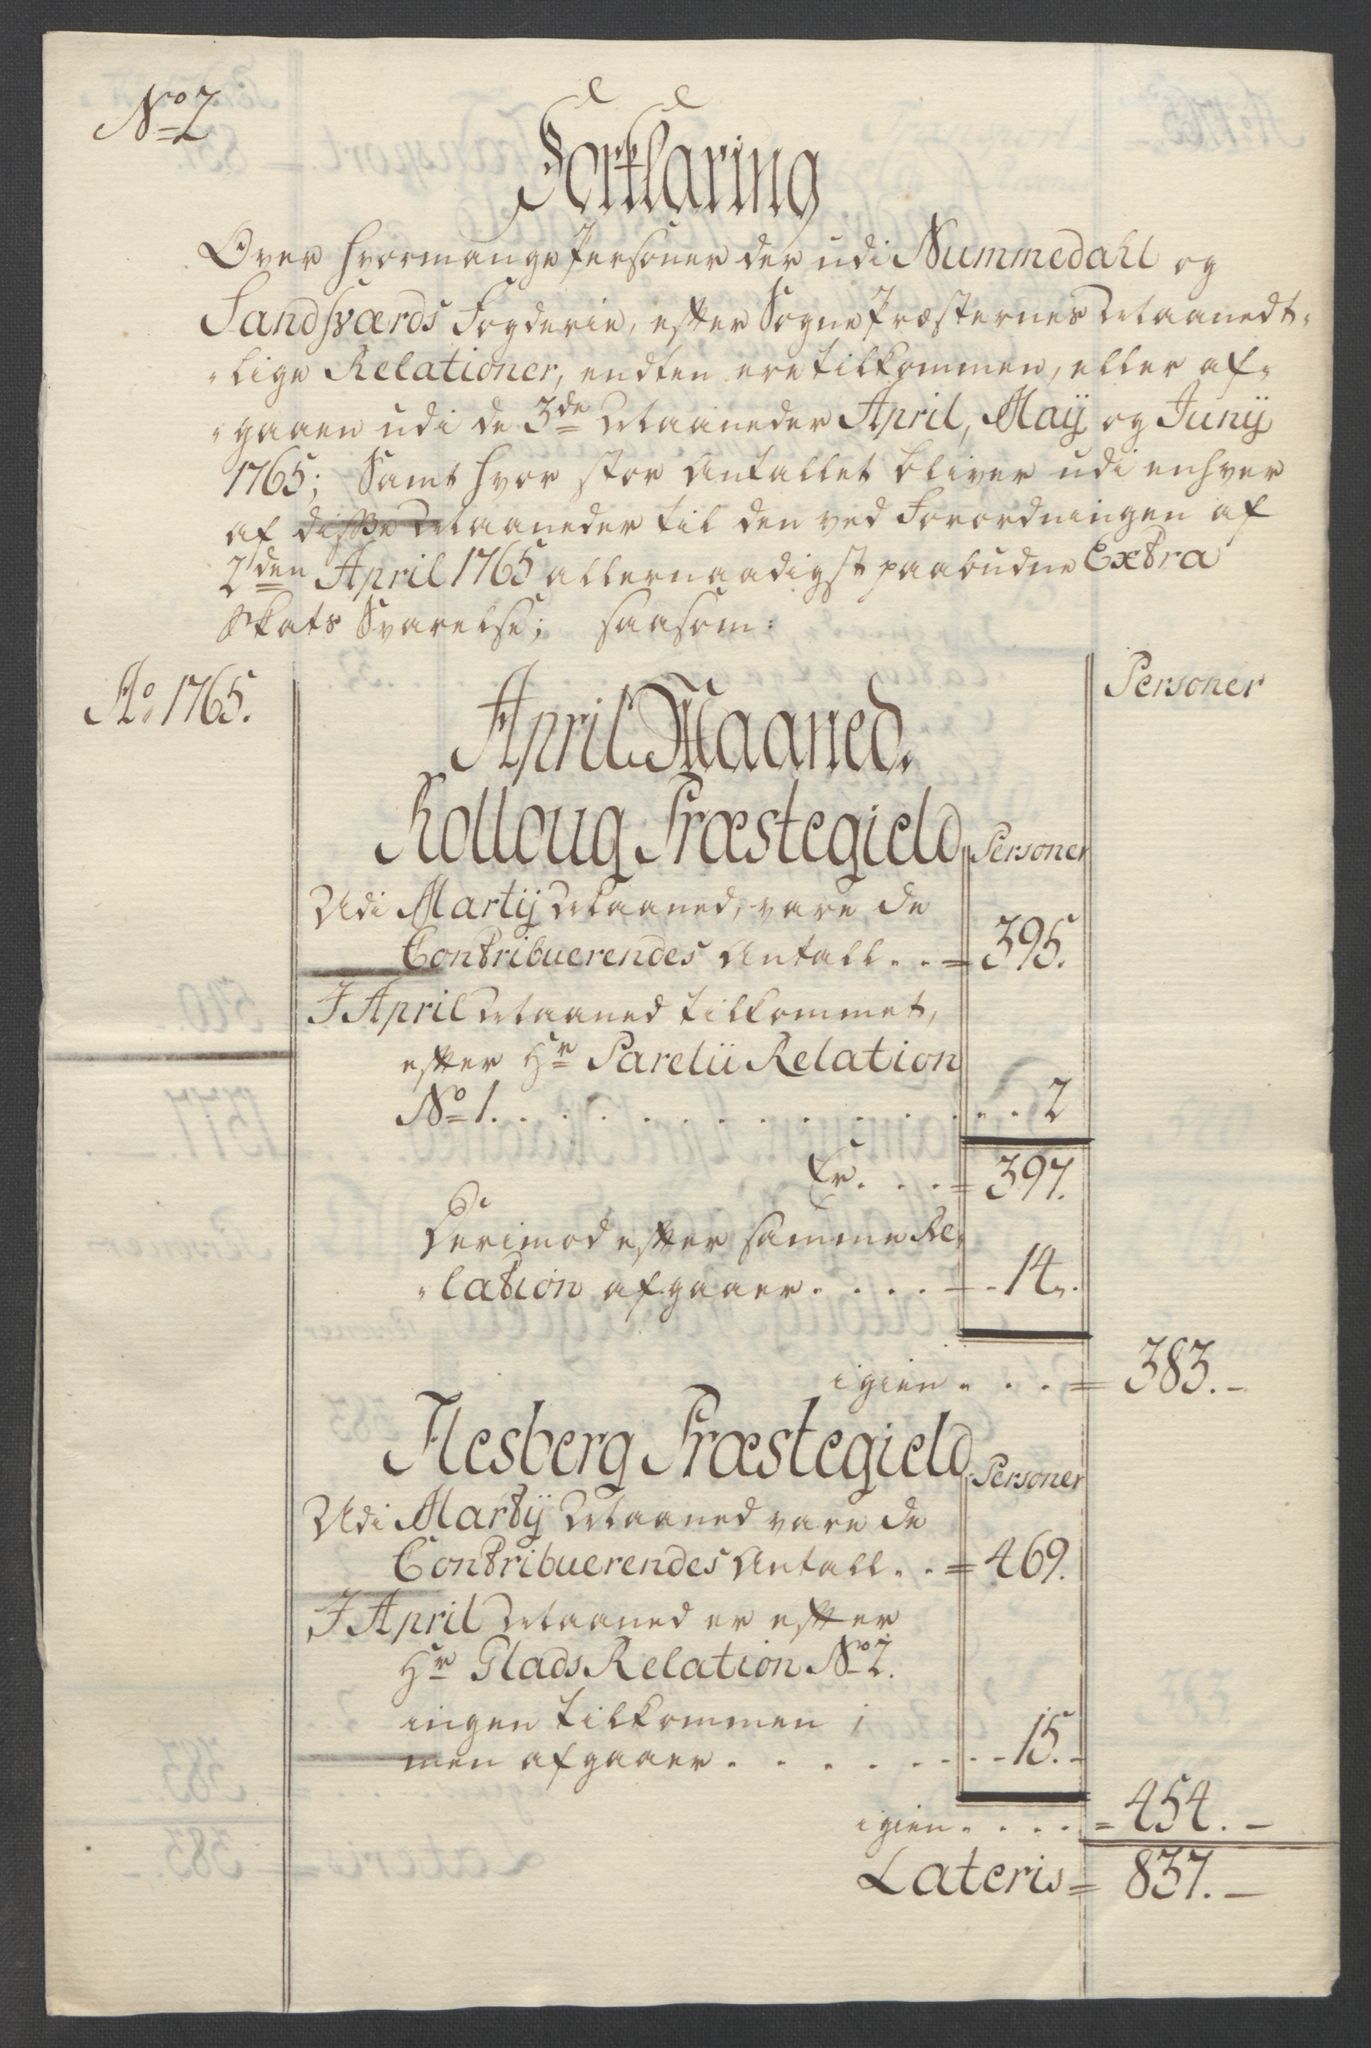 No 2
Forklaring
Over hvormange Personer der udi Nummedahl og
Sandsværds Fogderie, efter Sogne Præsternes Maanedt-
-lige Relationer, endten ere tilkommen, eller af-
-gaaen udi de 3de Maaneder April, Maÿ og Junÿ
1765; Samt hvor stor Antallet bliver udi enhver
af disse Maaneder til den ved Forordningen af
2den April 1765 allernaadigst paabudne Extra
Skats Svarelse; saasom:
Ao 1765.
Personer
April Maaned.
Rolloug Præstegield
Personer
Udi Martÿ Maaned, vare de
Contribuerendes Antall . . = 395.
I April Maaned tilkommet,
efter Hr Parelii Relation
No 1. . . . . . . . . . . . . 2
Er. . . . = 397.
Derimod efter samme Re-
-lation afgaaer. . . . - - 14.
igien . . . = 383. -
Flesberg Præstegield
Personer
Udi Martÿ Maaned vare de
Contribuerendes Antall. . = 469.
I April Maaned er efter
Hr Glads Relation No 2.
ingen tilkommen ;
men afgaaer . . . . . . - - 15. -
igien. . . . = 454. -
Lateris = 837. -